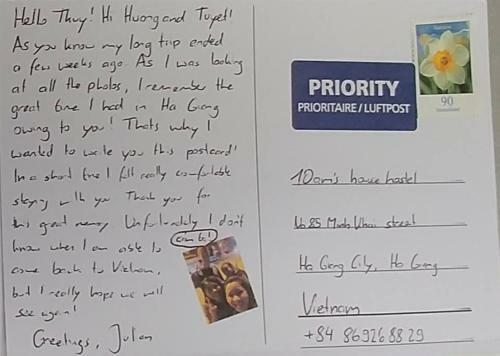 Hello Thuy! Hi Huong and Tuyet!
As you know my long trip ended
a few weeks ago. As I was looking
at all the photos, I remember the
great time I had in Ha Giang
owing to you! Thats why I
wanted to write you this postcard!
In a short time I fell really comfortable
staying with you. Thank you for
this great memory. Unfortunately I don't
know when I am able to
come back to Vietnam,
but I really hope we will
see again!
Greetings, Julian
PRIORITY
PRIORITAIRE/LUFTPOST
90
10am's house hostel
No 85 Minh Khai street
Ha Giang City, Ha Giang
Vietnam
+84 86926 88 29